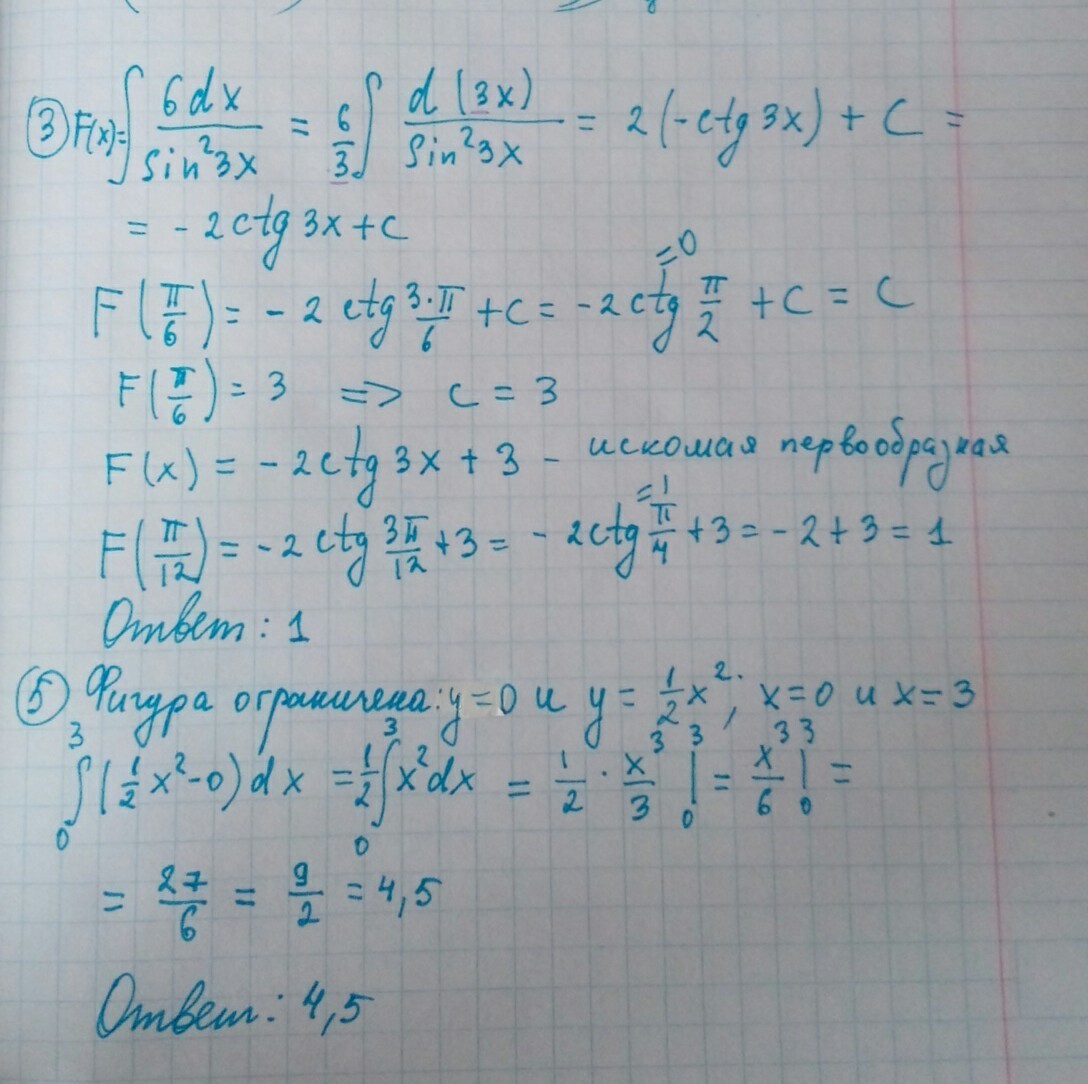 ③ F(x)=∫ 6dx/sin²3x = 6/3 ∫ d(3x)/sin²3x = 2(-ctg 3x) + C =
= - 2 ctg 3x + C
F(π/6) = - 2 ctg 3·π/6 + C = -2 ctg π/2 =0 + C = C
F(π/6) = 3 => C = 3
F(x) = - 2 ctg 3x + 3 - искомая первообразная
F(π/12) = -2 ctg 3π/12 + 3 = - 2 ctg π/4 =1 + 3 = - 2 + 3 = 1
Ответ: 1
⑤ Фигура ограничена: y=0 и y = 1/2 x²; x=0 и x=3
∫₀³ (1/2 x² - 0) dx = 1/2 ∫₀³ x² dx = 1/2 · x³/3 |₀³ = x³/6 |₀³ =
= 27/6 = 9/2 = 4,5
Ответ: 4,5